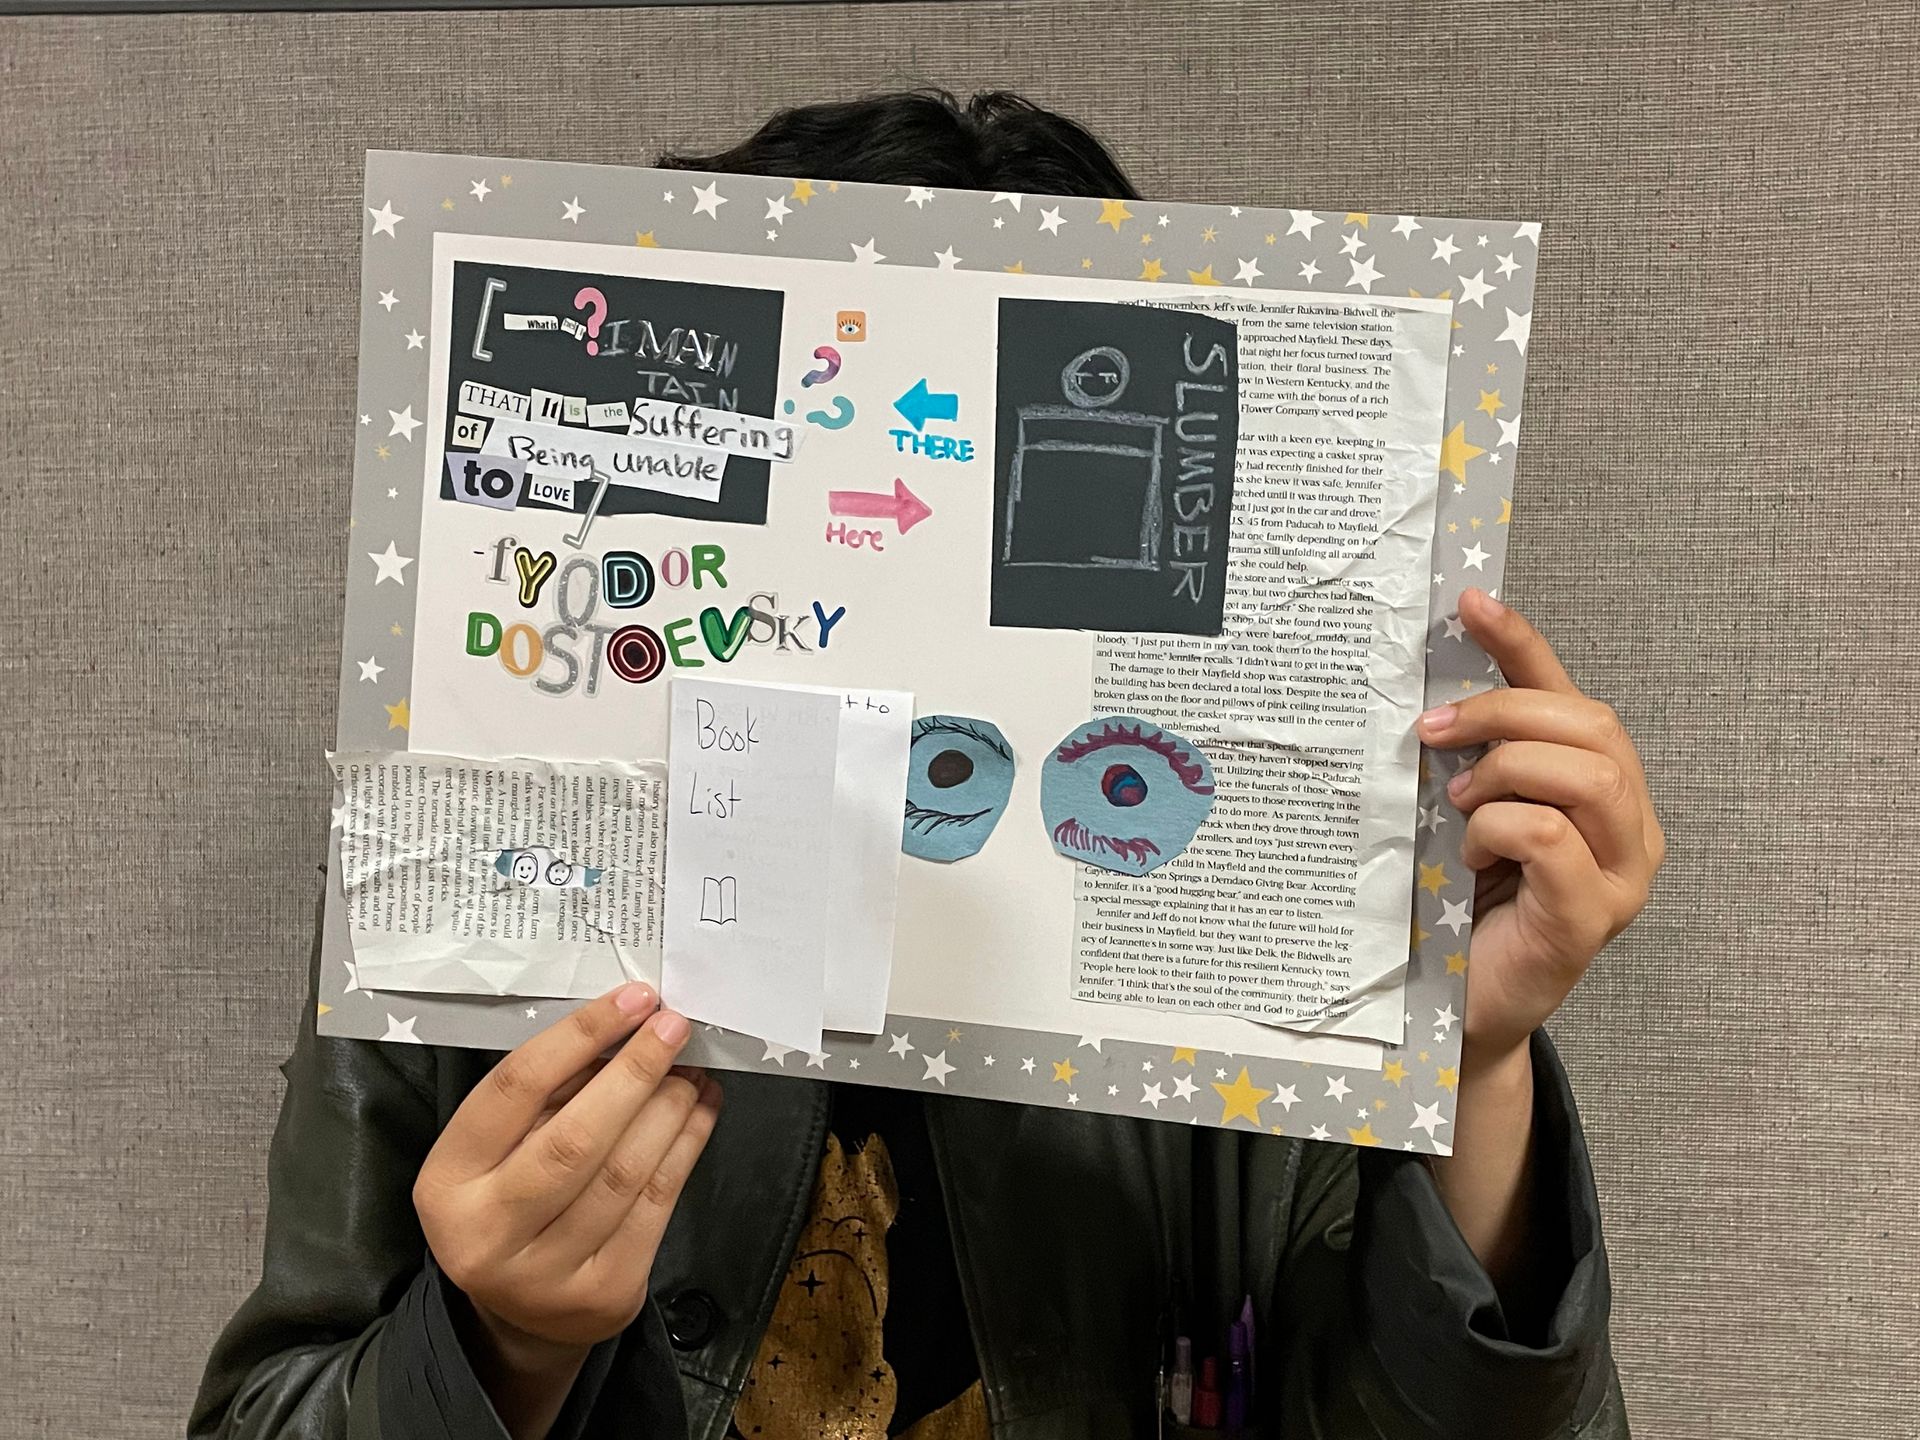 [ What is hell ? I MAIN
TAIN
THAT It is the Suffering
of Being unable
to LOVE ]
-fYODOR
DOSTOEVSKY
THERE
Here
SLUMBER
Book
List
t to
good," he remembers. Jeff's wife, Jennifer Rukavina-Bidwell, the
from the same television station.
approached Mayfield. These days,
that night her focus turned toward
their floral business. The
in Western Kentucky, and the
came with the bonus of a rich
Flower Company served people
with a keen eye, keeping in
was expecting a casket spray
had recently finished for their
as she knew it was safe, Jennifer
until it was through. Then
but I just got in the car and drove,"
U.S. 45 from Paducah to Mayfield,
that one family depending on her
trauma still unfolding all around,
she could help.
the store and walk," Jennifer says.
away, but two churches had fallen
get any farther." She realized she
shop, but she found two young
They were barefoot, muddy, and
bloody. "I just put them in my van, took them to the hospital,
and went home," Jennifer recalls. "I didn't want to get in the way."
The damage to their Mayfield shop was catastrophic, and
the building has been declared a total loss. Despite the sea of
broken glass on the floor and pillows of pink ceiling insulation
strewn throughout, the casket spray was still in the center of
unblemished.
couldn't get that specific arrangement
day, they haven't stopped serving
Utilizing their shop in Paducah,
the funerals of those whose
bouquets to those recovering in the
to do more. As parents, Jennifer
when they drove through town
strollers, and toys "just strewn every-
the scene. They launched a fundraising
child in Mayfield and the communities of
Springs a Demdaco Giving Bear. According
to Jennifer, it's a "good hugging bear," and each one comes with
a special message explaining that it has an ear to listen.
Jennifer and Jeff do not know what the future will hold for
their business in Mayfield, but they want to preserve the leg-
acy of Jeannette's in some way. Just like Delk, the Bidwells are
confident that there is a future for this resilient Kentucky town.
"People here look to their faith to power them through," says
Jennifer. "I think that's the soul of the community, their beliefs
and being able to lean on each other and God to guide them
history and also the personal artifacts–
the moments marked in family photo
albums and lovers' initials etched in
trees. There's a collective grief over
churches, where couples were married
and babies were baptized and the
square, where elders once
teenagers
went on their first
For weeks storm, farm
fields were littered pieces
of mangled metal you could
see. A mural that visitors to
Mayfield is still in the mouth of the
historic downtown, but now all that's
visible behind it are mountains of splin-
tered wood and heaps of bricks.
The tornado struck just two weeks
before Christmas. As masses of people
poured in to help, the juxtaposition of
tumbled-down businesses and homes
decorated with festive wreaths and col-
ored lights was striking. Truckloads of
Christmas trees were being unloaded